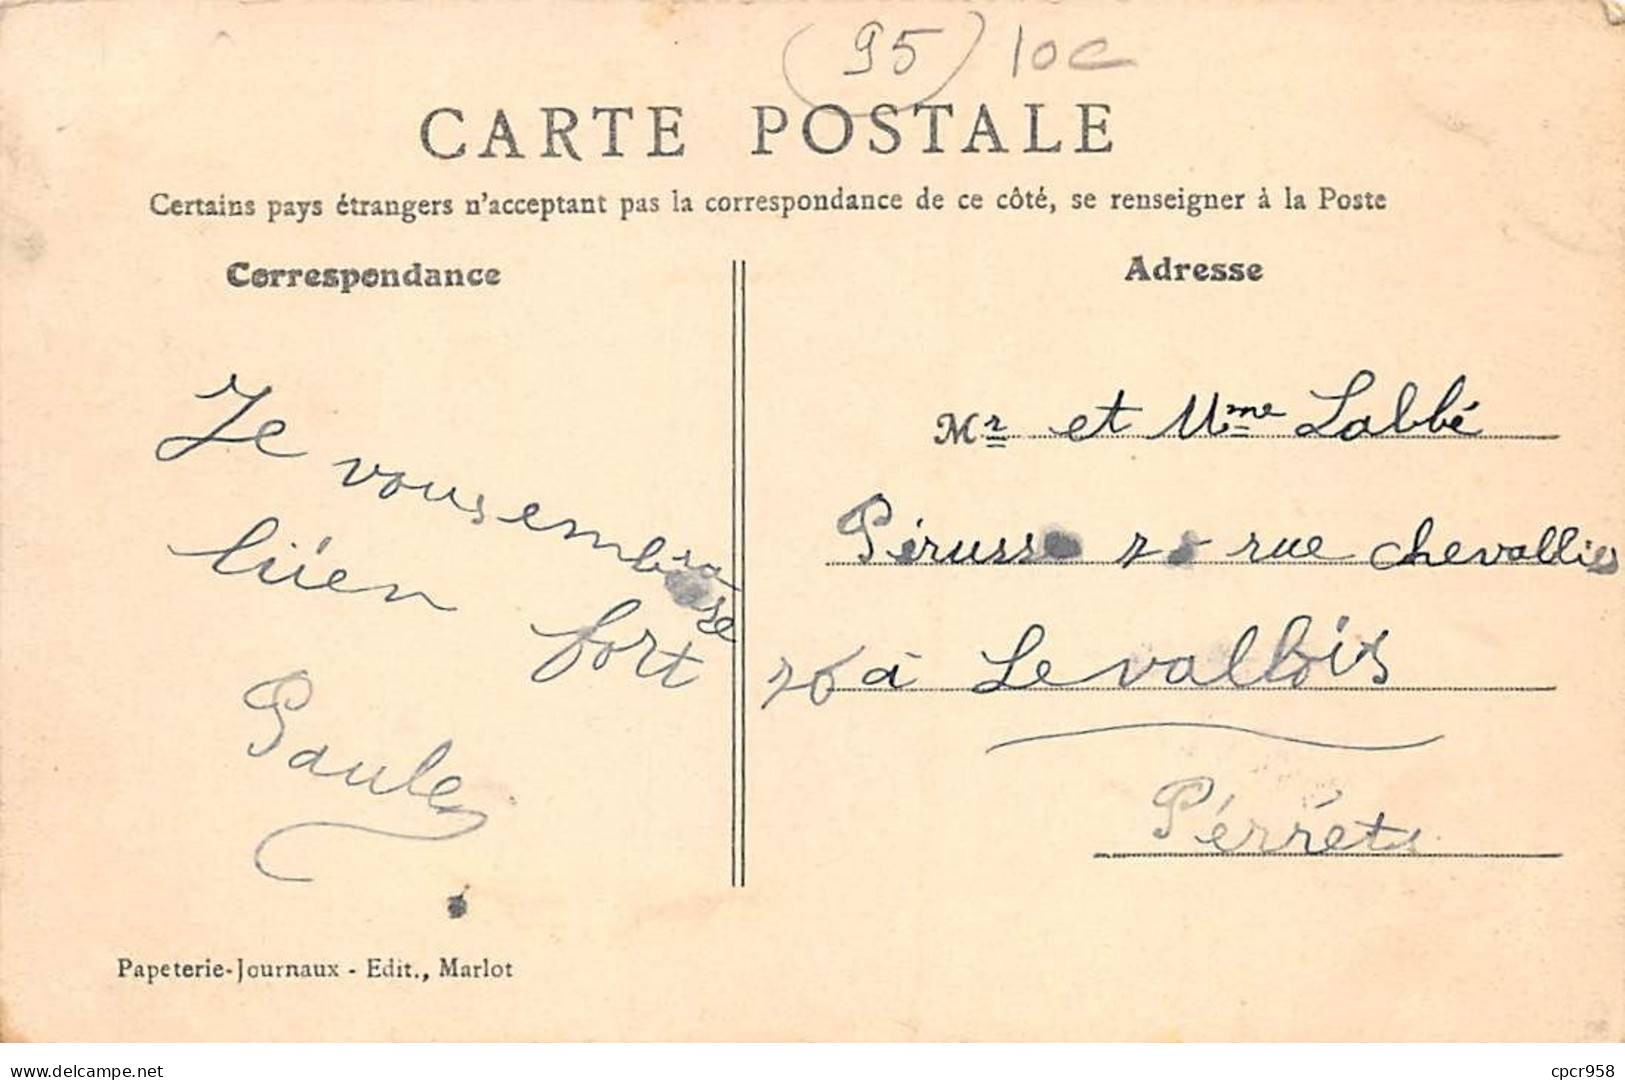 (95) 10c
CARTE POSTALE
Certains pays étrangers n'acceptant pas la correspondance de ce côté, se renseigner à la Poste
Correspondance
Je vous embrasse
bien fort
Paule
Papeterie-Journaux - Edit., Marlot
Adresse
Mr et Mme Labbé
Pérusse rue chevallier
76 à Levallois
Pérrets
www.delcampe.net
cpcr958